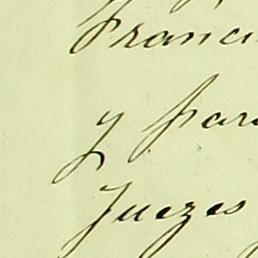 Franci
y para
Juezes